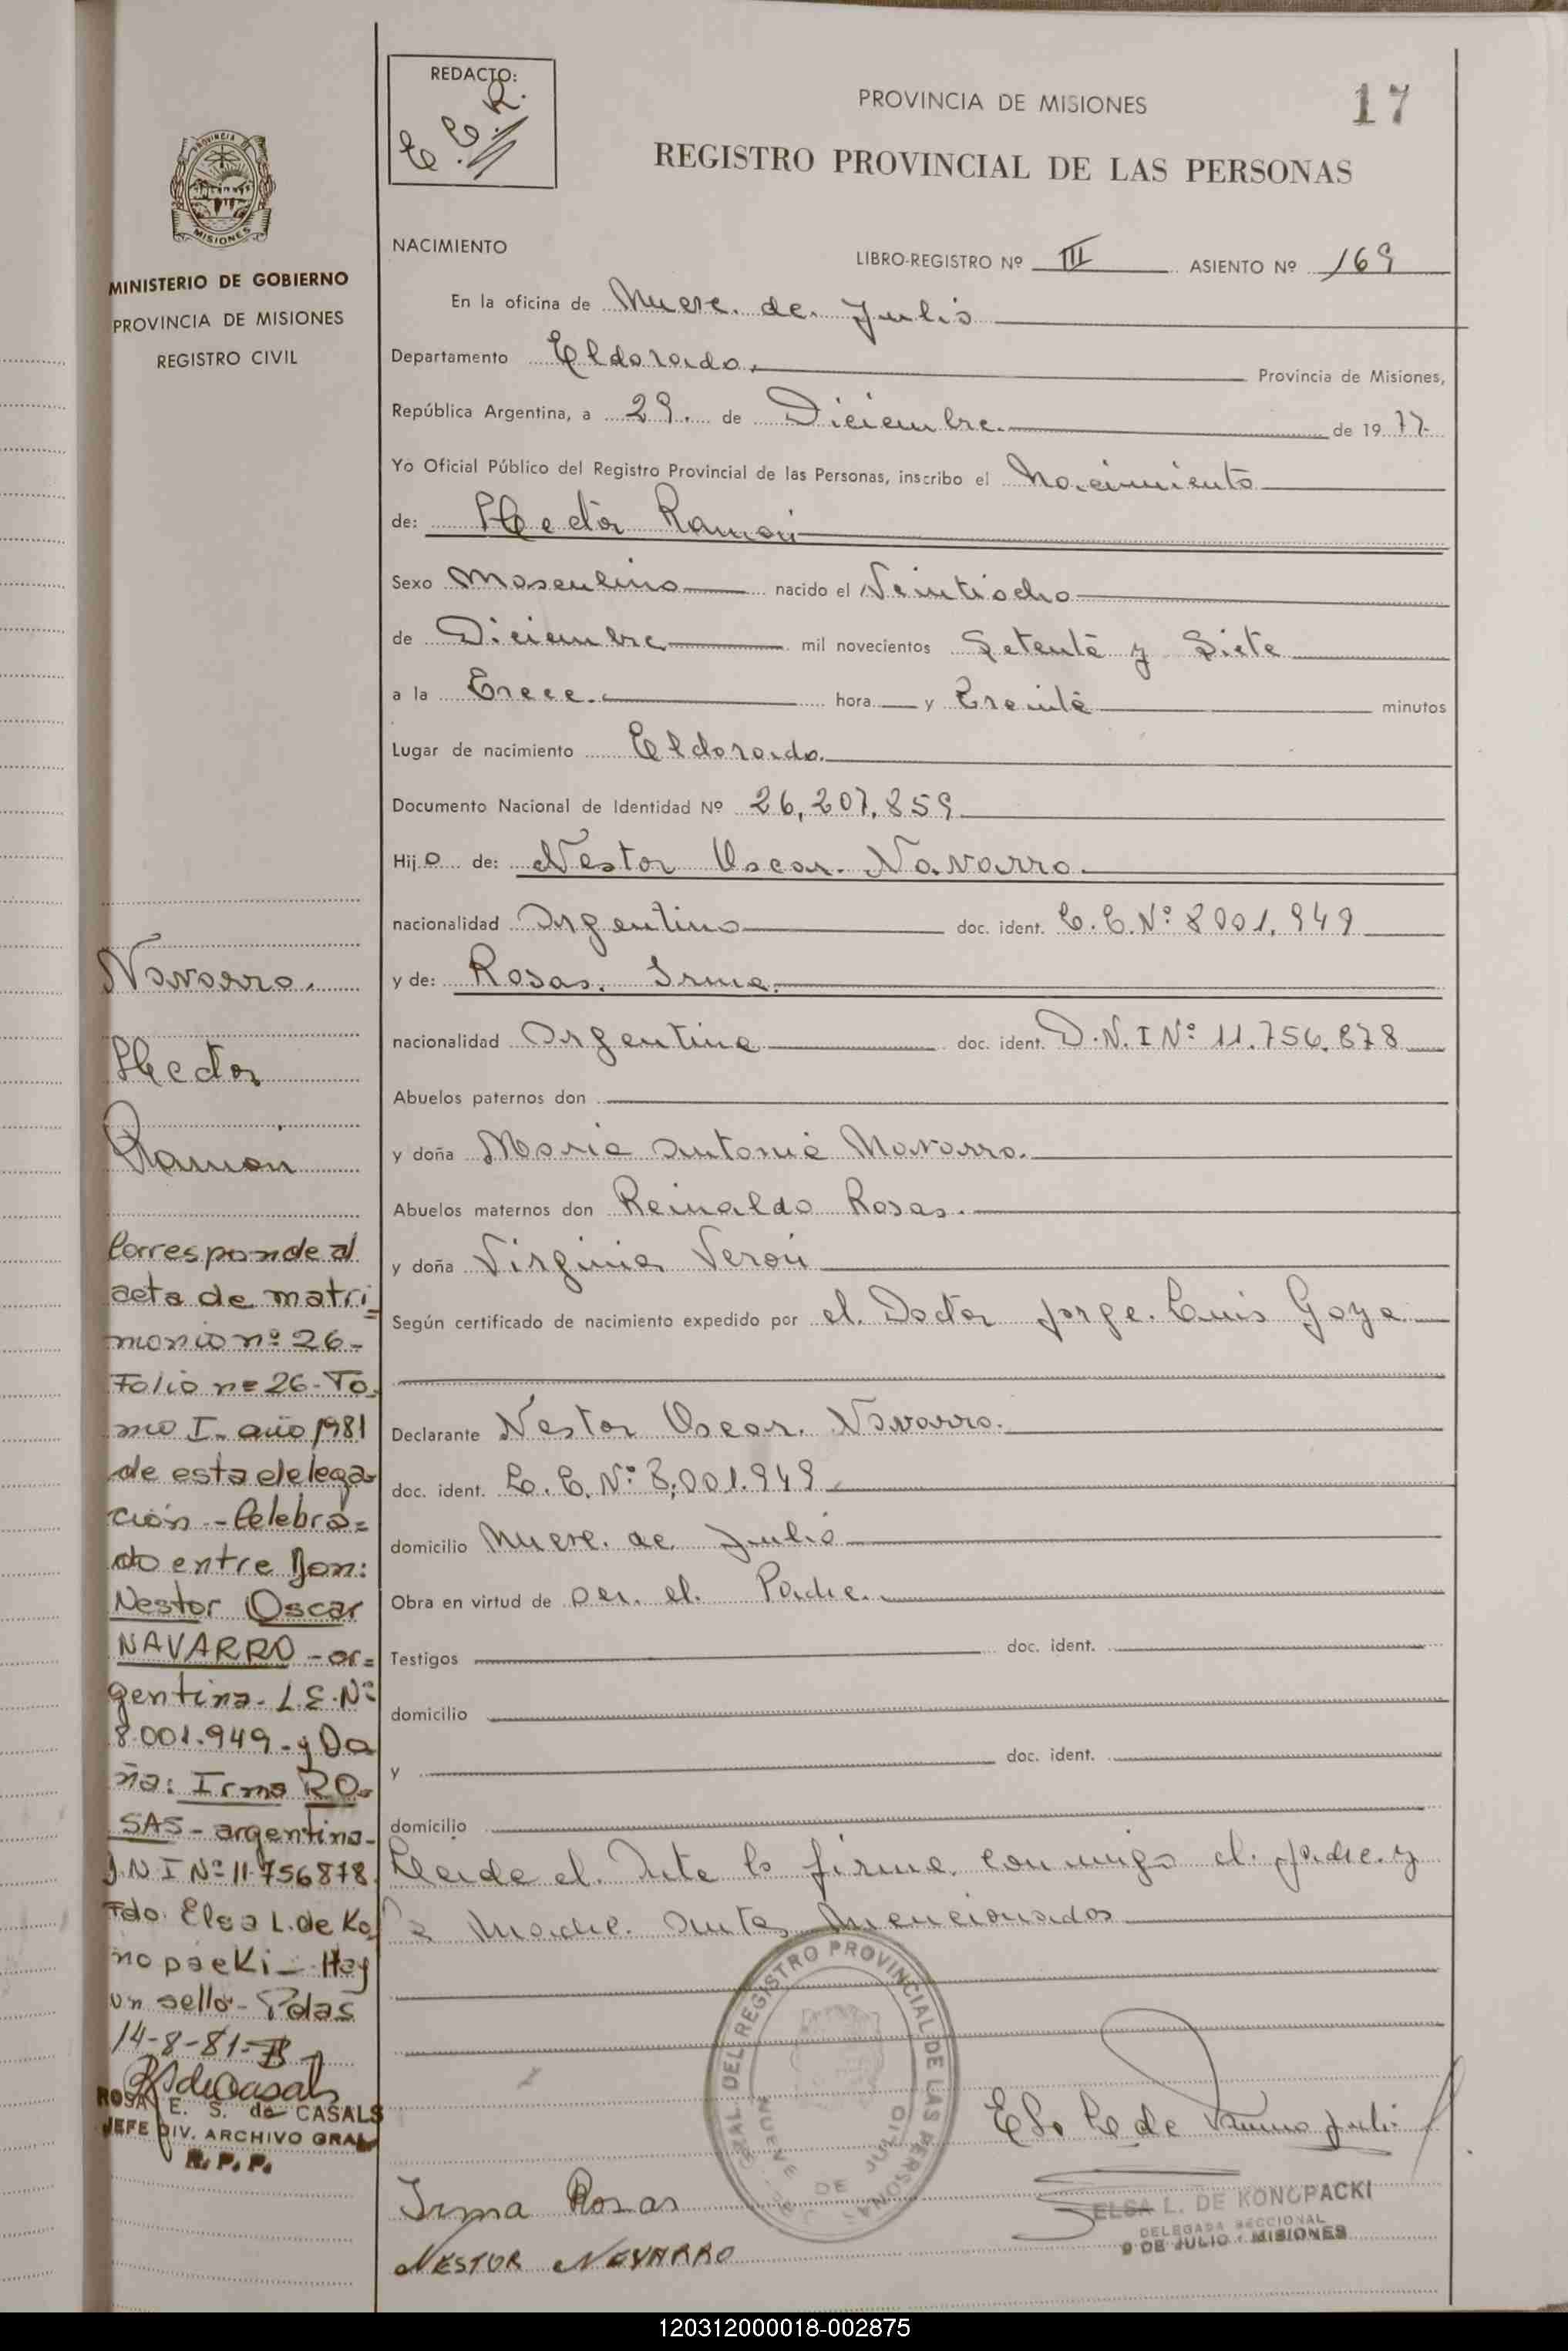 REDACTO:
E. C. R.
PROVINCIA DE MISIONES
17
REGISTRO PROVINCIAL DE LAS PERSONAS
PROVINCIA
MISIONES
MINISTERIO DE GOBIERNO
PROVINCIA DE MISIONES
REGISTRO CIVIL
NACIMIENTO
LIBRO-REGISTRO Nº III ASIENTO Nº 169
En la oficina de Nueve de Julio
Departamento Eldorado, Provincia de Misiones,
República Argentina, a 29 de Diciembre de 1977
Yo Oficial Público del Registro Provincial de las Personas, inscribo el Nacimiento
de: Hector Ramon
Sexo Masculino nacido el Veintiocho
de Diciembre mil novecientos Setenta y Siete
a la Trece hora y Treinta minutos
Lugar de nacimiento Eldorado
Documento Nacional de Identidad Nº 26,207,859
Hijo de: Nestor Oscar Navarro
nacionalidad Argentino doc. ident. L.E. Nº 8001.949
y de: Rosas, Irma
nacionalidad Argentina doc. ident. D.N.I Nº 11.756.878
Abuelos paternos don
y doña Maria Antonia Navarro.
Abuelos maternos don Reinaldo Rosas.
y doña Virginia Verón
Según certificado de nacimiento expedido por el Doctor Jorge Luis Goya
Declarante Nestor Oscar Navarro.
doc. ident. L.E. Nº 8,001.949
domicilio Nueve de Julio
Obra en virtud de ser el Padre.
Testigos doc. ident.
domicilio
y doc. ident.
domicilio
Leida el Acta la firma conmigo el padre y
la Madre antes mencionados
Navarro.
Hector
Ramón
Corresponde al
acta de matri=
monio nº 26-
Folio nº 26-To
mo I- año 1981
de esta delega
ción - Celebra=
do entre Don:
Nestor Oscar
NAVARRO - ar=
gentina- L.E. Nº
8.001.949 - y Do
ña: Irma RO-
SAS - argentina-
D.N.I Nº 11.756878
Fdo. Elsa L. de Ko
nopacki - Hay
un sello - Pdas
14-8-81-
ROSA E. S. de CASALS
JEFE DIV. ARCHIVO GRAL
R. P. P.
REGISTRO PROVINCIAL DE LAS PERSONAS
NUEVE DE JULIO
Irma Rosas
NESTOR NAVARRO
ELSA L. DE KONOPACKI
DELEGADA SECCIONAL
9 DE JULIO - MISIONES
120312000018-002875